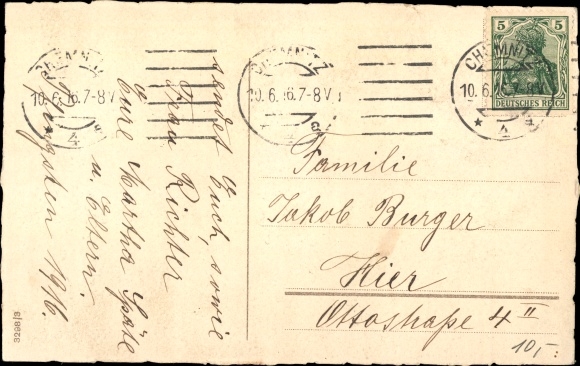 sendet Euch, sowie
Frau Richter
Eure Martha Späte
u. Eltern.
Pfingsten 1916.
CHEMNITZ
10.6.16.7-8V
* 4
CHEMNITZ
10.6.16.7-8V
* 4
CHEMNITZ
10.6.16.7-8V
* 4
5 5
DEUTSCHES REICH
Familie
Jakob Burger
Hier
Ottostraße 4 II
10,-
3298/3